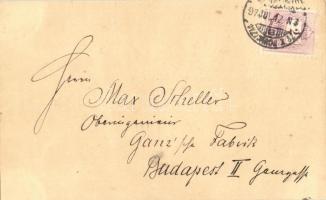 97 JUL. 12.
Herrn
Max Scheller
Oberingenieur
Ganz'sche Fabrik
Budapest II Ganzgasse